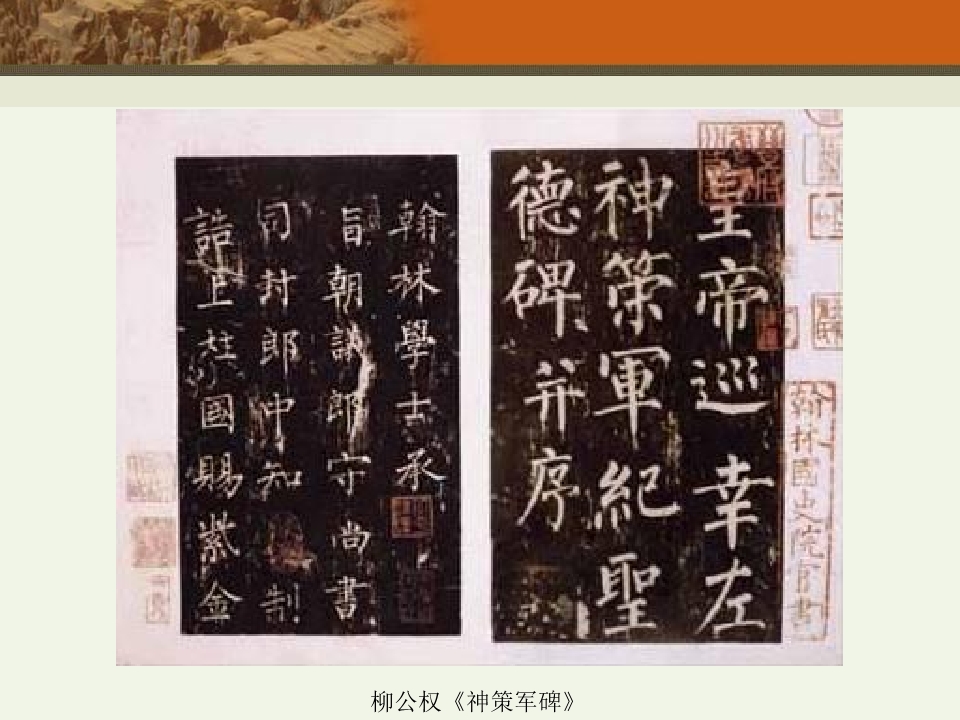 皇帝巡幸左
神策軍紀聖
德碑并序
翰林學士承
旨朝議郎守尚書
司封郎中知制
誥上柱國賜紫金
翰林國史院官書
柳公权《神策军碑》